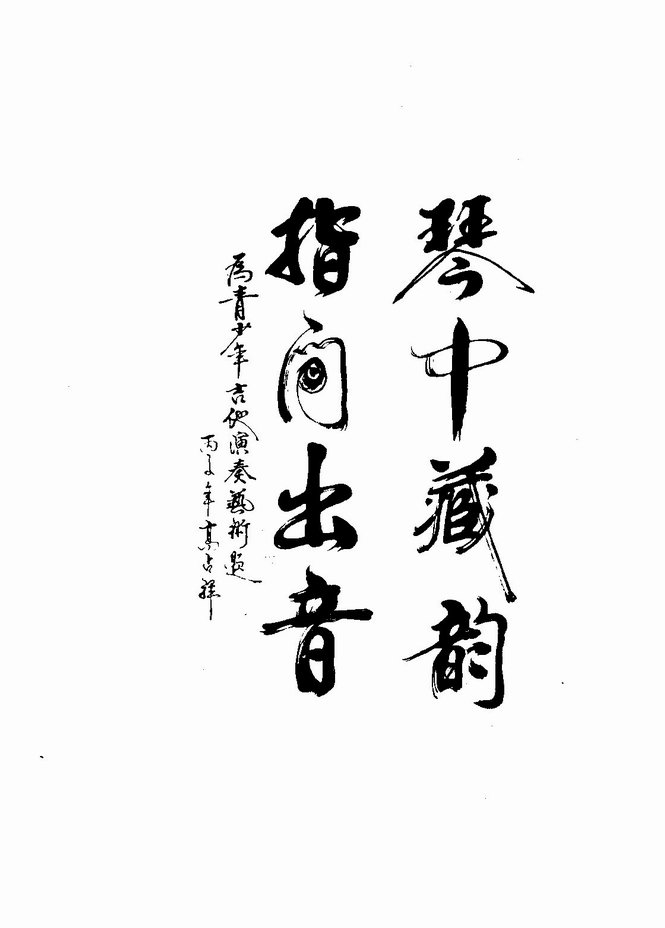 琴中藏韵
指间出音
为青少年吉他演奏藝術题
丙子年高占祥